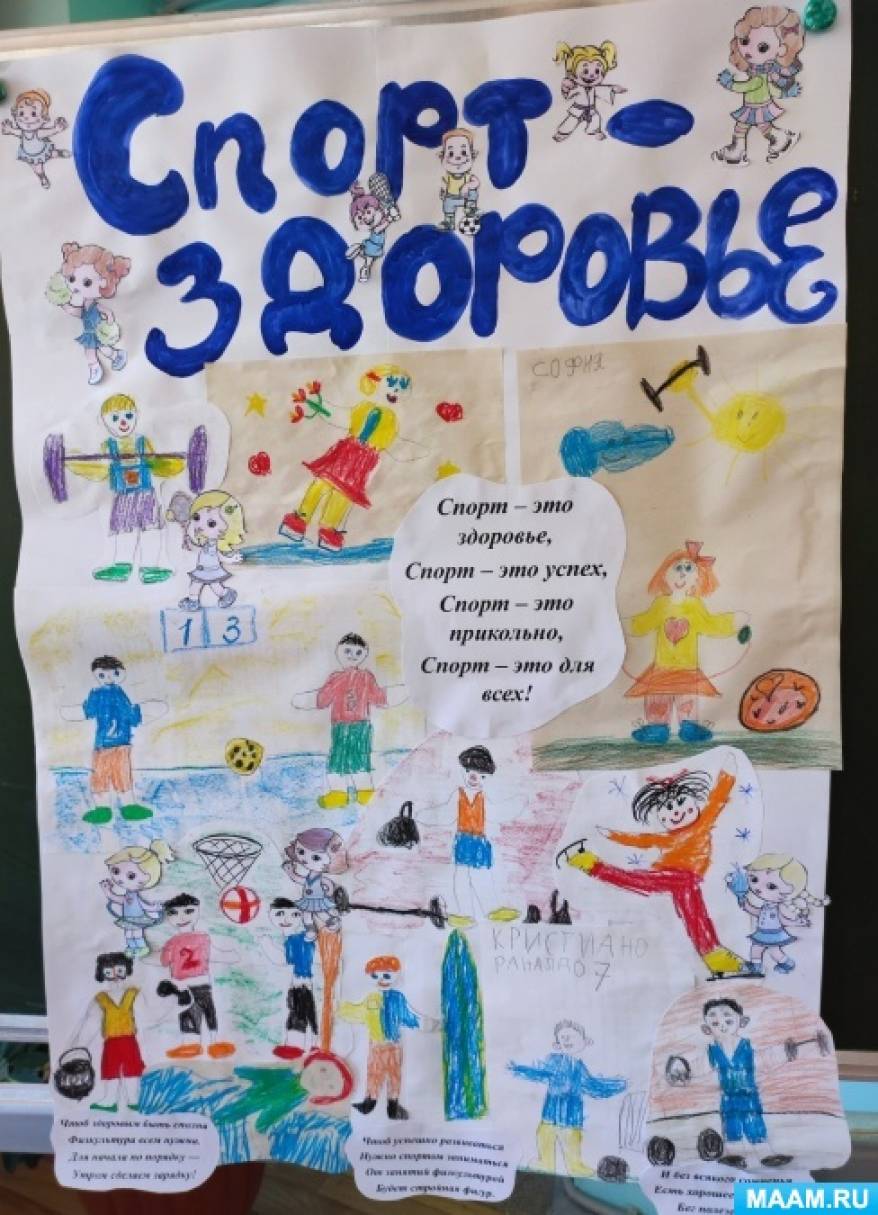 Спорт -
здоровье
СОФИЯ
Спорт – это
здоровье,
Спорт – это успех,
Спорт – это
прикольно,
Спорт – это для
всех!
1 3
2
2
КРИСТИАНО
РАНАЛДО 7
Чтоб здоровым быть сполна
Физкультура всем нужна.
Для начала по порядку —
Утром сделаем зарядку!
Чтоб успешно развиваться
Нужно спортом заниматься
От занятий физкультурой
Будет стройная фигур.
И без всякого сомненья
Есть хорошее
Бег полезе
MAAM.RU